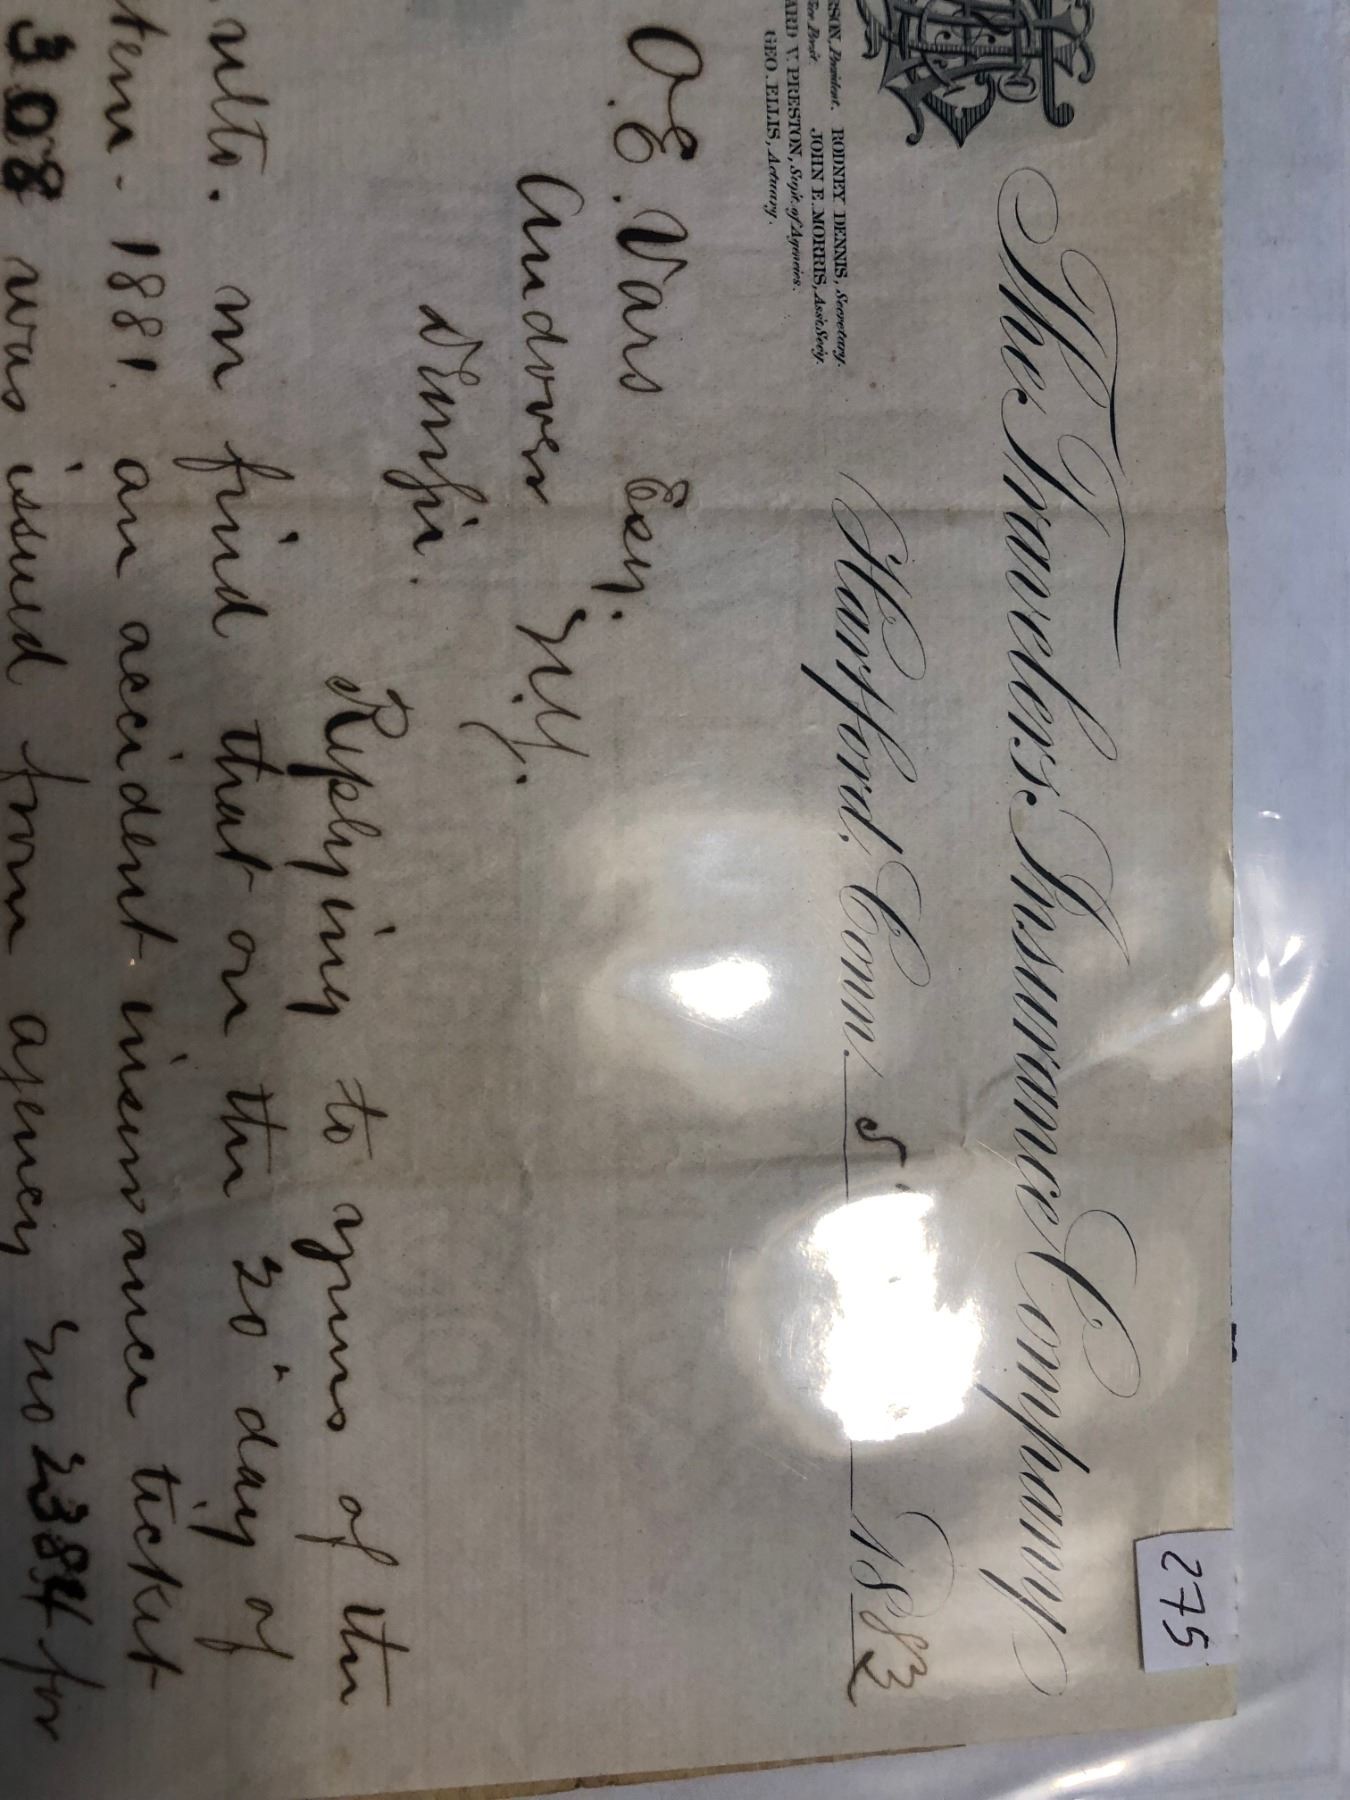 275
The Travelers Insurance Company
SSON, President. RODNEY DENNIS, Secretary.
JOHN E. MORRIS, Ass't Sec'y.
ARD V. PRESTON, Sup't. of Agencies.
GEO. ELLIS, Actuary.
Hartford, Conn. 5 1883
O. E. Vars Esq.
Andover N.Y.
D Sir
Replying to yours of the
ulto. we find that on the 20" day of
1881. an accident insurance ticket
308 was issued from agency no 2384 for